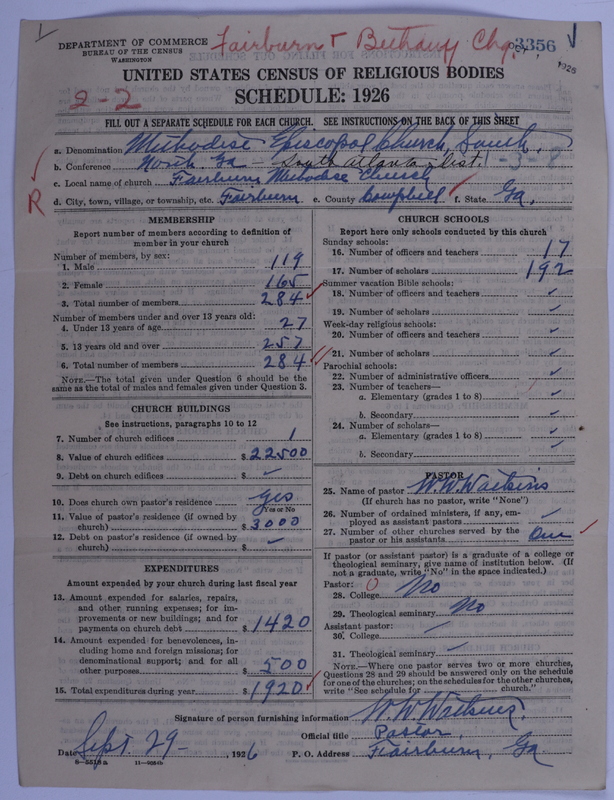 Fairburn & Bethany Chg.
3356
DEPARTMENT OF COMMERCE
BUREAU OF THE CENSUS
WASHINGTON
1926
UNITED STATES CENSUS OF RELIGIOUS BODIES
SCHEDULE: 1926
2-2
FILL OUT A SEPARATE SCHEDULE FOR EACH CHURCH. SEE INSTRUCTIONS ON THE BACK OF THIS SHEET
a. Denomination Methodist Episcopal Church, South.
b. Conference North Ga — South Atlanta dist. 1-3-8
c. Local name of church Fairburn Methodist Church
R
d. City, town, village, or township, etc. Fairburn e. County Campbell f. State Ga.
MEMBERSHIP
Report number of members according to definition of
member in your church
Number of members, by sex:
1. Male 119
2. Female 165
3. Total number of members 284
Number of members under and over 13 years old:
4. Under 13 years of age 27
5. 13 years old and over 257
6. Total number of members 284
NOTE.—The total given under Question 6 should be
the same as the total of males and females given under Question 3.
CHURCH BUILDINGS
See instructions, paragraphs 10 to 12
7. Number of church edifices 1
8. Value of church edifices $22500
9. Debt on church edifices $ ✓
10. Does church own pastor's residence yes
Yes or No
11. Value of pastor's residence (if owned by
church) $3000
12. Debt on pastor's residence (if owned by
church) $ ✓
EXPENDITURES
Amount expended by your church during last fiscal year
13. Amount expended for salaries, repairs,
and other running expenses; for im-
provements or new buildings; and for
payments on church debt $1420
14. Amount expended for benevolences, in-
cluding home and foreign missions; for
denominational support; and for all
other purposes $500
15. Total expenditures during year $1920
CHURCH SCHOOLS
Report here only schools conducted by this church
Sunday schools:
16. Number of officers and teachers 17
17. Number of scholars 192
Summer vacation Bible schools:
18. Number of officers and teachers ✓
19. Number of scholars ✓
Week-day religious schools:
20. Number of officers and teachers ✓
21. Number of scholars ✓
Parochial schools:
22. Number of administrative officers ✓
23. Number of teachers—
a. Elementary (grades 1 to 8) ✓
b. Secondary ✓
24. Number of scholars—
a. Elementary (grades 1 to 8) ✓
b. Secondary ✓
PASTOR
25. Name of pastor W. W. Watkins
(If church has no pastor, write "None")
26. Number of ordained ministers, if any, em-
ployed as assistant pastors ✓
27. Number of other churches served by the
pastor or his assistants One
If pastor (or assistant pastor) is a graduate of a college or
theological seminary, give name of institution below. (If
not a graduate, write "No" in the space indicated.)
Pastor: 0
28. College No
29. Theological seminary No
Assistant pastor:
30. College
31. Theological seminary
NOTE.—Where one pastor serves two or more churches,
Questions 28 and 29 should be answered only on the schedule
for one of the churches; on the schedules for the other churches,
write "See schedule for church."
Signature of person furnishing information W. W. Watkins.
Official title Pastor
Date Sept. 29 — , 1926 P. O. Address Fairburn, Ga
8—5518a 11—9084b